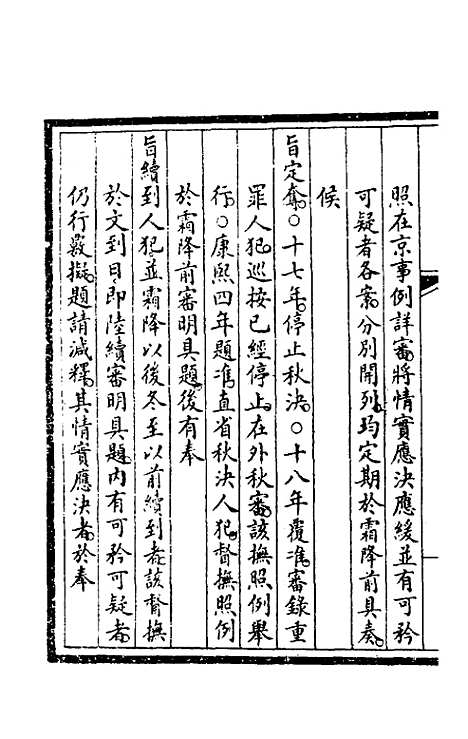 照在京事例詳審將情實應決應緩並有可矜
可疑者各案分別開列均定期於霜降前具奏
候
旨定奪○十七年停止秋決○十八年覆准審錄重
罪人犯巡按已經停止在外秋審該撫照例舉
行○康熙四年題准直省秋決人犯督撫照例
於霜降前審明具題後有奉
旨續到人犯並霜降以後冬至以前續到者該督撫
於文到日即陸續審明具題內有可矜可疑者
仍行覈擬題請減釋其情實應決者於奉